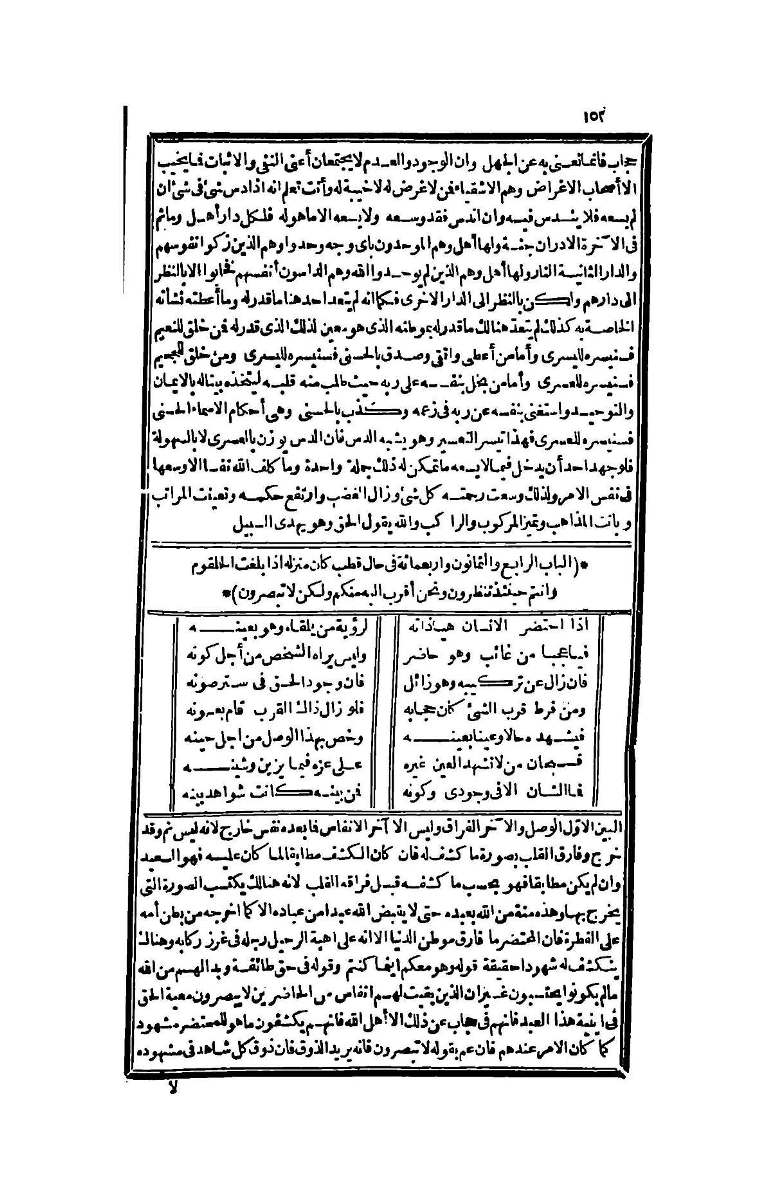 ١٥٢
حجاب فانما نعنى به عن الجهل وان الوجود والعدم لا يجتمعان أعنى النفى والاثبات فما يخيب
الا أصحاب الاغراض وهم الاشقياء فمن لا غرض له لا خيبة له وأنت تعلم انه اذا دس شئ فى شئ ان
لم يسعه فلا يندس فيه وان اندس فقد وسعه ولا يسعه الا ما هو له فلكل دار أهل وما ثم
فى الآخرة الا داران جنة ولها أهل وهم الموحدون باى وجه وحدوا وهم الذين زكوا نفوسهم
والدار الثانية النار ولها أهل وهم الذين لم يوحدوا الله وهم الداسون أنفسهم نخابوا الا بالنظر
الى دارهم ولكن بالنظر الى الدار الاخرى فكما انه لم يتعد احد هنا ما قدر له وما أعطته نشأته
الخاصة به كذلك لم يتعد هنالك ما قدر له بموطنه الذى هو معين لذلك الذى قدر له فمن خلق للنعيم
فسنيسره لليسرى وأما من أعطى واتقى وصدق بالحسنى فسنيسره لليسرى ومن خلق للجحيم
فسنيسره للعسرى وأما من بخل بنفسه على ربه حيث طلب منه قلبه ليتخذه بيتا له بالايمان
والتوحيد واستغنى بنفسه عن ربه فى زعمه وكذب بالحسنى وهى أحكام الاسماء الحسنى
فسنيسره للعسرى فهذا تيسر التعسير وهو يشبه الدس فان الدس يؤذن بالعسرى لا بالسهولة
فلو جهد احد أن يدخل فيما لا يسعه ما تمكن له ذلك جملة واحدة وما كلف الله نفسا الا وسعها
فى نفس الامر ولذلك وسعت رحمته كل شئ وزال الغضب وارتفع حكمه وتعينت المراتب
وبانت المذاهب وتميز المركوب والراكب والله يقول الحق وهو يهدى السبيل
*(الباب الرابع والثمانون واربعمائة فى حال قطب كان منزله اذا بلغت الحلقوم
وانتم حينئذ تنظرون ونحن أقرب اليه منكم ولكن لا تبصرون)*
اذا احتضر الانسان هيا ذاته لرؤية من يلقاه وهو بعينه
فيا عجبا من غائب وهو حاضر وليس يراه الشخص من أجل كونه
فان زال عن تركيبه وهو زائل فان وجود الحق فى ستر صونه
ومن فرط قرب الشئ كان حجابه فلو زال ذاك القرب قام بعونه
فيشهده حالا وعينا بعينه وخص بهذا الوصل من اجل حينه
فسبحان من لا تشهد العين غيره على عزه فيما يزين وشينه
فما الشان الا فى وجودى وكونه فمن بينه كانت شواهد بينه
البين الاول الوصل والآخر الفراق وليس الا آخر الانفاس فما بعده نفس خارج لانه ليس ثم وقد
خرج وفارق القلب بصورة ما كشف له فان كان الكشف مطابقا لما كان عليه فهو السعيد
وان لم يكن مطابقا فهو بحسب ما كشفه قبل فراقه القلب لانه هنالك يكتسب الصورة التى
يخرج بها وهذه منة من الله بعبده حتى لا يقبض الله عبدا من عباده الا كما اخرجه من بطن أمه
على الفطرة فان المحتضر ما فارق موطن الدنيا الا انه على اهبة الرحيل رجله فى غرز ركابه وهنالك
ينكشف له شهودا حقيقة قوله وهو معكم اينما كنتم وقوله فى حق طائفة وبدا لهم من الله
ما لم يكونوا يحتسبون غير ان الذين بقيت لهم انفاس من الحاضرين لا يبصرون معية الحق
فى اينية هذا العبد فانهم فى حجاب عن ذلك الا أهل الله فانهم يكشفون ما هو للمحتضر مشهود
كما كان الامر عندهم فان عم بقوله لا تبصرون فانه يريد الذوق فان ذوق كل شاهد فى مشهوده
لا